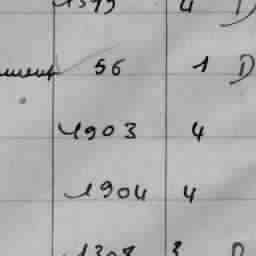 1399 4 D
ment 56 1 D
1903 4
1904 4
1308 3 D